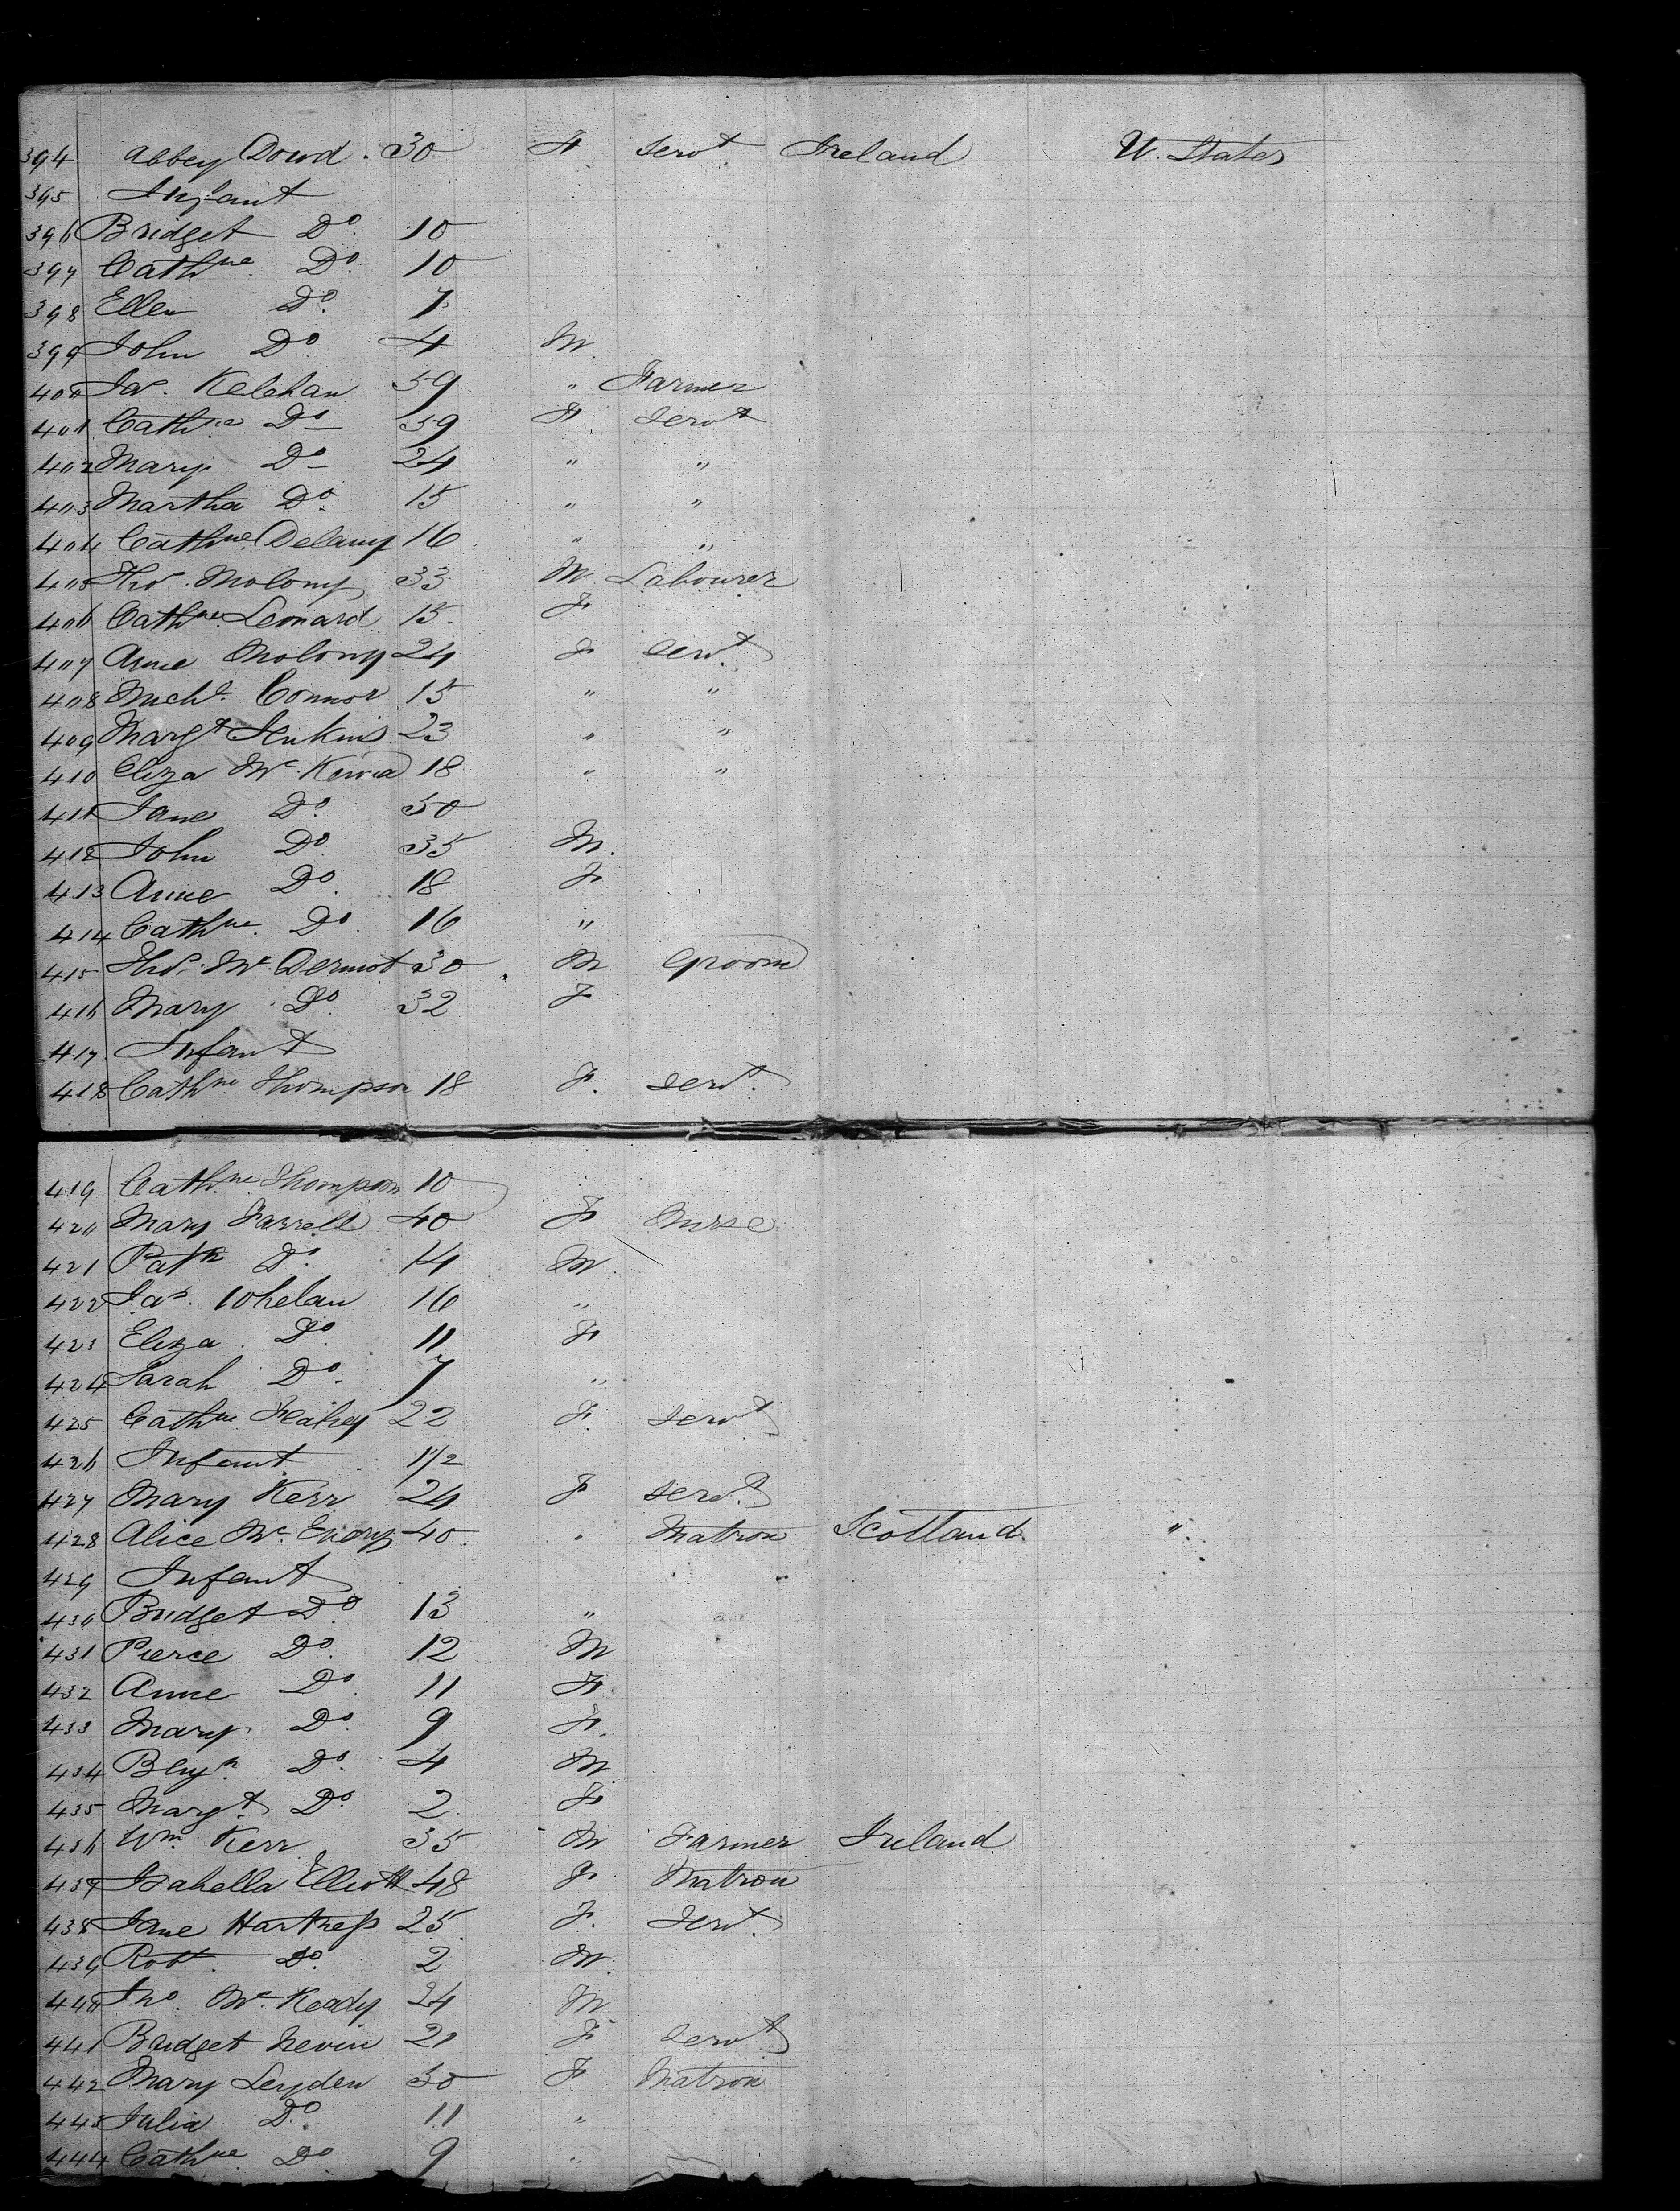 394 Abbey Dowd. 30 F Servt. Ireland U. States
395 Infant
396 Bridget Do. 10
397 Cathne. Do. 10
398 Ellen Do. 7
399 John Do. 4 M.
400 Jas. Kelehan 59 " Farmer
401 Cathne Do 59 F Servt
402 Mary Do 24 " "
403 Martha Do. 15 " "
404 Cathne. Delany 16 " "
405 Thos. Molony 33 M. Labourer
406 Cathne. Leonard 15. F
407 Anne Molony 24 F Servt.
408 Michl. Connor 15 " "
409 Margt Jenkins 23 " "
410 Eliza Mc. 18 " "
411 Jane Do. 50
412 John Do. 35 M.
413 Anne Do. 18 F
414 Cathne. Do. 16 "
415 Thos. Mc. Dermot 30 M Groom
416 Mary Do. 32 F
417 Infant
418 Cathne Thompson 18 F. Servt.
419 Cathne. Thompson 10
420 Mary Farrell 40 F Nurse
421 Patk Do. 14 M.
422 Jas. Whelan 16 "
423 Eliza. Do. 11 F
424 Sarah Do. 7 "
425 Cathne 22 F. Servt
426 Infant 1 1/2
427 Mary Kerr 24 F Servt.
428 Alice Mc. 40. " Matron Scotland ".
429 Infant
430 Bridget Do 13 "
431 Pierce Do. 12 M
432 Anne Do. 11 F.
433 Mary Do. 9 F.
434 Benjn. Do. 4 M
435 Margt. Do. 2. F
436 Wm. Kerr 35 M Farmer Ireland
437 Isabella Elliott 48 F. Matron
438 Jane 25. F. Servt.
439 Robt. Do. 2 M.
440 Jno. Mc. Keady 24 M
441 Bridget Nevin 21 F Servt.
442 Mary Leyden 30 F Matron
443 Julia Do. 11 "
444 Cathne. Do 9 "